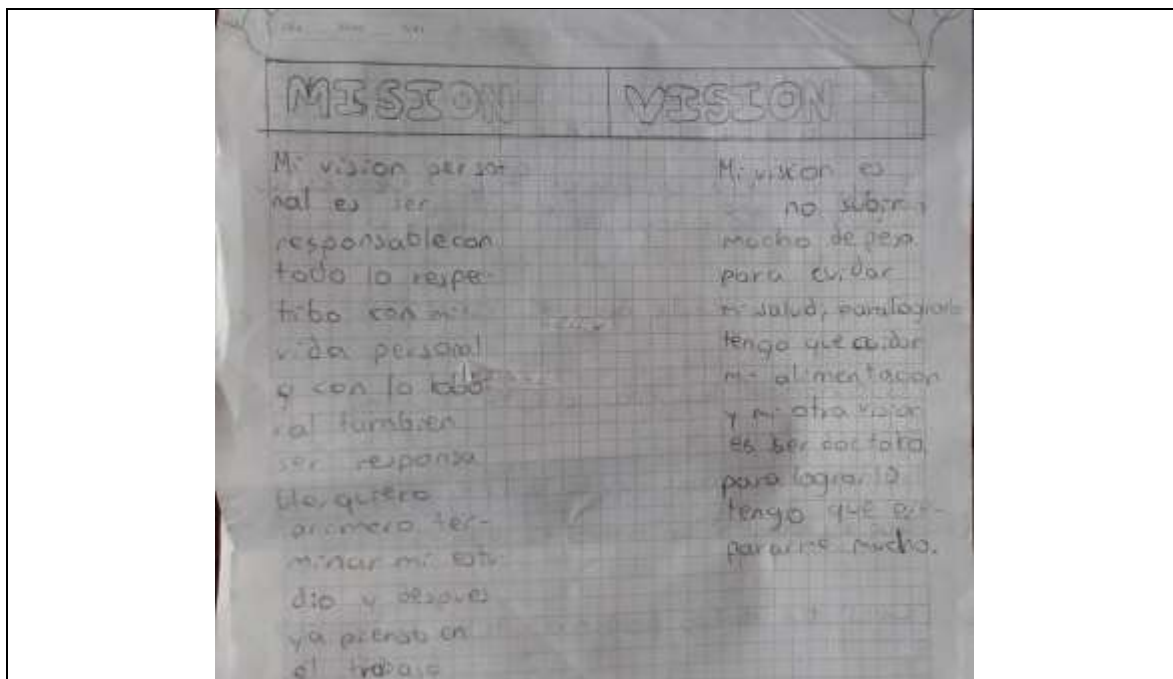 MISION
VISION
Mi vision perso-
nal es ser
responsable con
todo lo respe-
tibo con mi
vida personal
y con lo labo-
ral tambien
ser responsa
ble, quiero
primero ter-
minar mi estu-
dio y despues
ya pienso en
el trabajo
Mi vision es
no subir
mucho de peso
para cuidar
mi salud, para lograrlo
tengo que cuidar
mi alimentacion
y mi otra vision
es ser doctora,
para lograrlo
tengo que pre-
pararme mucho.